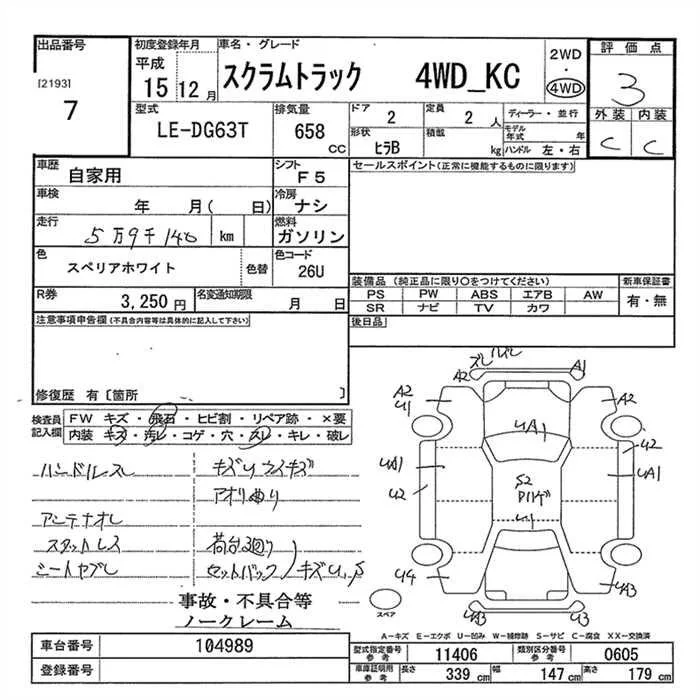 出品番号
[2193]
7
初度登録年月
平成
15 12 月
車名・グレード
スクラムトラック 4WD_KC
2WD
・
4WD
評価点
3
外装 内装
C C
型式
LE-DG63T
排気量
658 CC
ドア
2
定員
2 人
ディーラー・並行
形状
ヒラB
積載
kg
モデル年式 年
ハンドル 左・右
車歴
自家用
シフト
F5
セールスポイント(正常に機能するものに限ります)
車検
年 月( 日)
冷房
ナシ
走行
5万9千140 km
燃料
ガソリン
色
スペリアホワイト
色替
色コード
26U
装備品 (純正品に限り○をつけてください)
新車保証書
PS PW ABS エアB AW
有・無
SR ナビ TV カワ
R券
3,250 円
名変通知期限
月 日
後日品
注意事項申告欄(不具合内容等は具体的に記入して下さい)
修復歴 有〔箇所 〕
検査員
記入欄
FW キズ・飛石・ヒビ割・リペア跡・×要
内装 キズ・汚レ・コゲ・穴・スレ・キレ・破レ
ハンドルスレ
キズUウスイキズ
アオリ曲り
アンテナオレ
スタットレス
荷台廻り
シートヤブレ
セットバック
キズU,S
事故・不具合等
ノークレーム
ズレ
A2
A1
A2
U1
A2
UA1
UA1
U2
U2
UA1
S2
U1
U4
UA3
UA3
U3
スペア
A-キズ E-エクボ U-凹み W-補修跡 S-サビ C-腐食 XX-交換済
車台番号
104989
型式指定番号
参考
11406
類別区分番号
参考
0605
登録番号
車庫証明用
参考
長さ 339 cm 幅 147 cm 高さ 179 cm